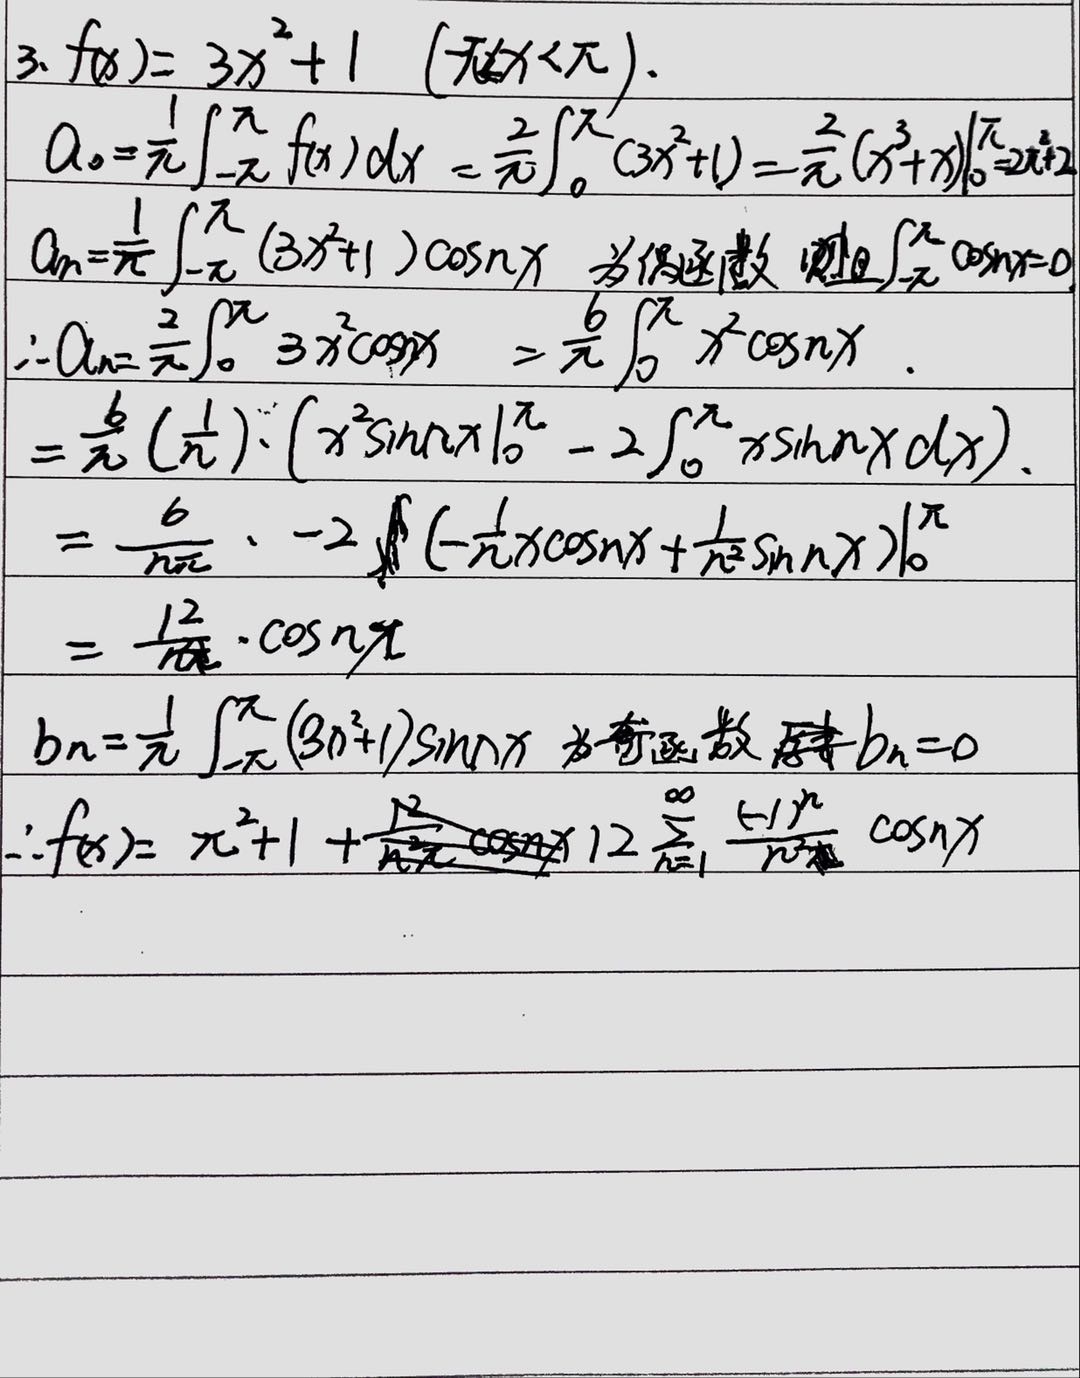 3. f(x) = 3x²+1 (-π≤x<π).
a₀ = 1/π ∫_{-π}^{π} f(x)dx = 2/π ∫_0^π (3x²+1) = 2/π (x³+x)|_0^π = 2π²+2
aₙ = 1/π ∫_{-π}^{π} (3x²+1)cosnx 为偶函数 且 ∫_{-π}^{π} cosnx=0
∴aₙ = 2/π ∫_0^π 3x²cosnx = 6/π ∫_0^π x²cosnx.
= 6/π (1/n)·(x²sinnx|_0^π - 2∫_0^π xsinnxdx).
= 6/nπ · -2 (-1/n xcosnx + 1/n² sinnx)|_0^π
= 12/ · cosnπ
bₙ = 1/π ∫_{-π}^{π} (3x²+1)sinnx 为奇函数 bₙ=0
∴f(x) = π²+1 + 12 ∑_{n=1}^{∞} (-1)ⁿ/n² cosnx